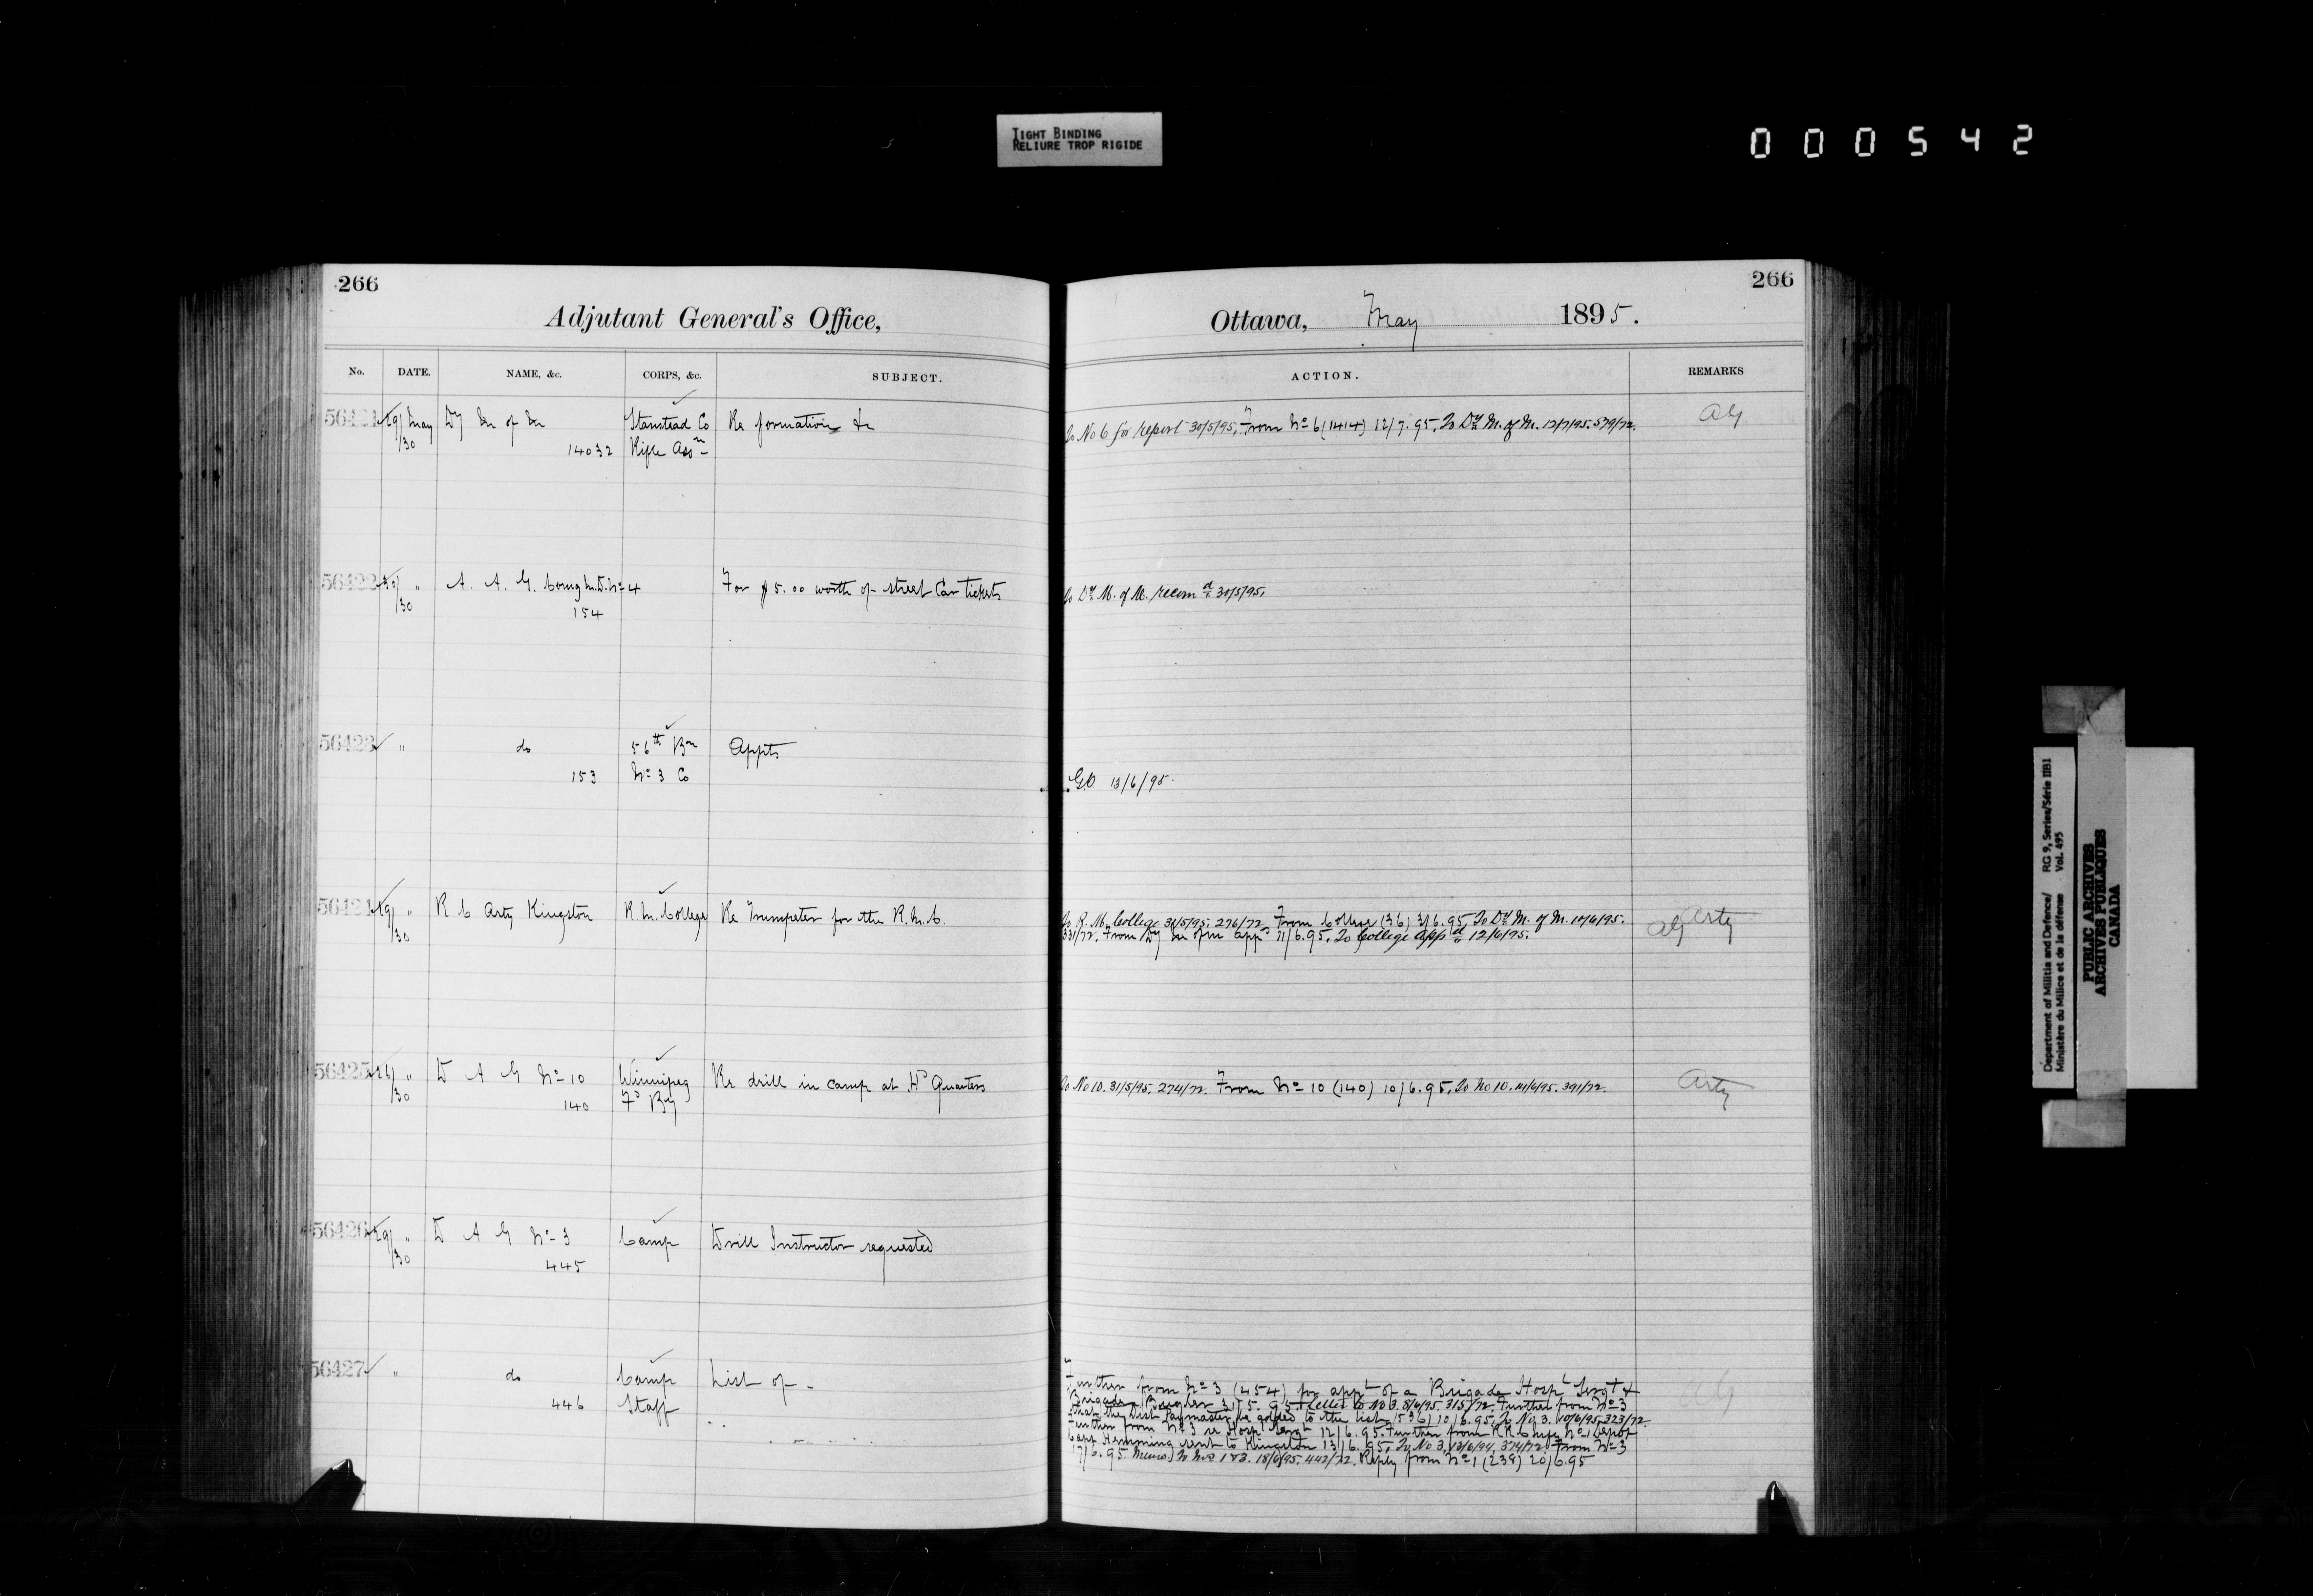 TIGHT BINDING
RELIURE TROP RIGIDE
000542
266
Adjutant General's Office,
No. DATE. NAME, &c. CORPS, &c. SUBJECT.
56421 29/May Dy M of M Stanstead Co Re formation &c
/30 14032 Rifle Assn
56422 29/ " A. A. G. Comg M.D. No 4 For $5.00 worth of street Car tickets
/30 154
56423 " do 56th Bn Appts
153 No 3 Co
56424 29/ " R C Arty Kingston R.M. College Re Trumpeter for the R.M.C.
/30
56425 " D A G No 10 Winnipeg Re drill in camp at Hd Quarters
/30 140 Fd By
56426 29/ " D A G No 3 Camp Drill Instructor requested
/30 445
56427 " do Camp List of -
446 Staff
266
Ottawa, May 1895.
ACTION. REMARKS
To No 6 for report 30/5/95. From No 6 (1414) 12/7.95. To Dy M. of M. 12/7/95. 579/72. AG
To Dy M. of M. recomd 30/5/95.
G.O. 13/6/95.
To R.M. College 31/5/95. 276/72. From College (36) 3/6.95 To Dy M. of M. 10/6/95. AG Arty
331/72. From Dy M of M appd 11/6.95. To College appd 12/6/95.
To No 10. 31/5/95. 274/72. From No 10 (140) 10/6.95. To No 10. 14/6/95. 391/72. Arty
Further from No 3 (454) for appt of a Brigade Hospl Sergt & AG
Brigade Bugler 31/5.95. Letter to No 3. 8/6/95. 315/72. Further from No 3
that the Dist Paymaster be added to the list (536) 10/6.95. To No 3. 10/6/95. 323/72.
Further from No 3 re Hospl Sergt 12/6.95. Further from RR C Inf No 1 Depot
Capt Hemming sent to Kingston 13/6.95. To No 3. 13/6/94. 374/72. From No 3
17/6.95. Memo) to Nos 1 & 3. 18/6/95. 442/72. Reply from No 1 (239) 20/6.95
Department of Militia and Defence/ RG 9, Series/Série IIB1
Ministère du Milice et de la défense Vol. 495
PUBLIC ARCHIVES
ARCHIVES PUBLIQUES
CANADA